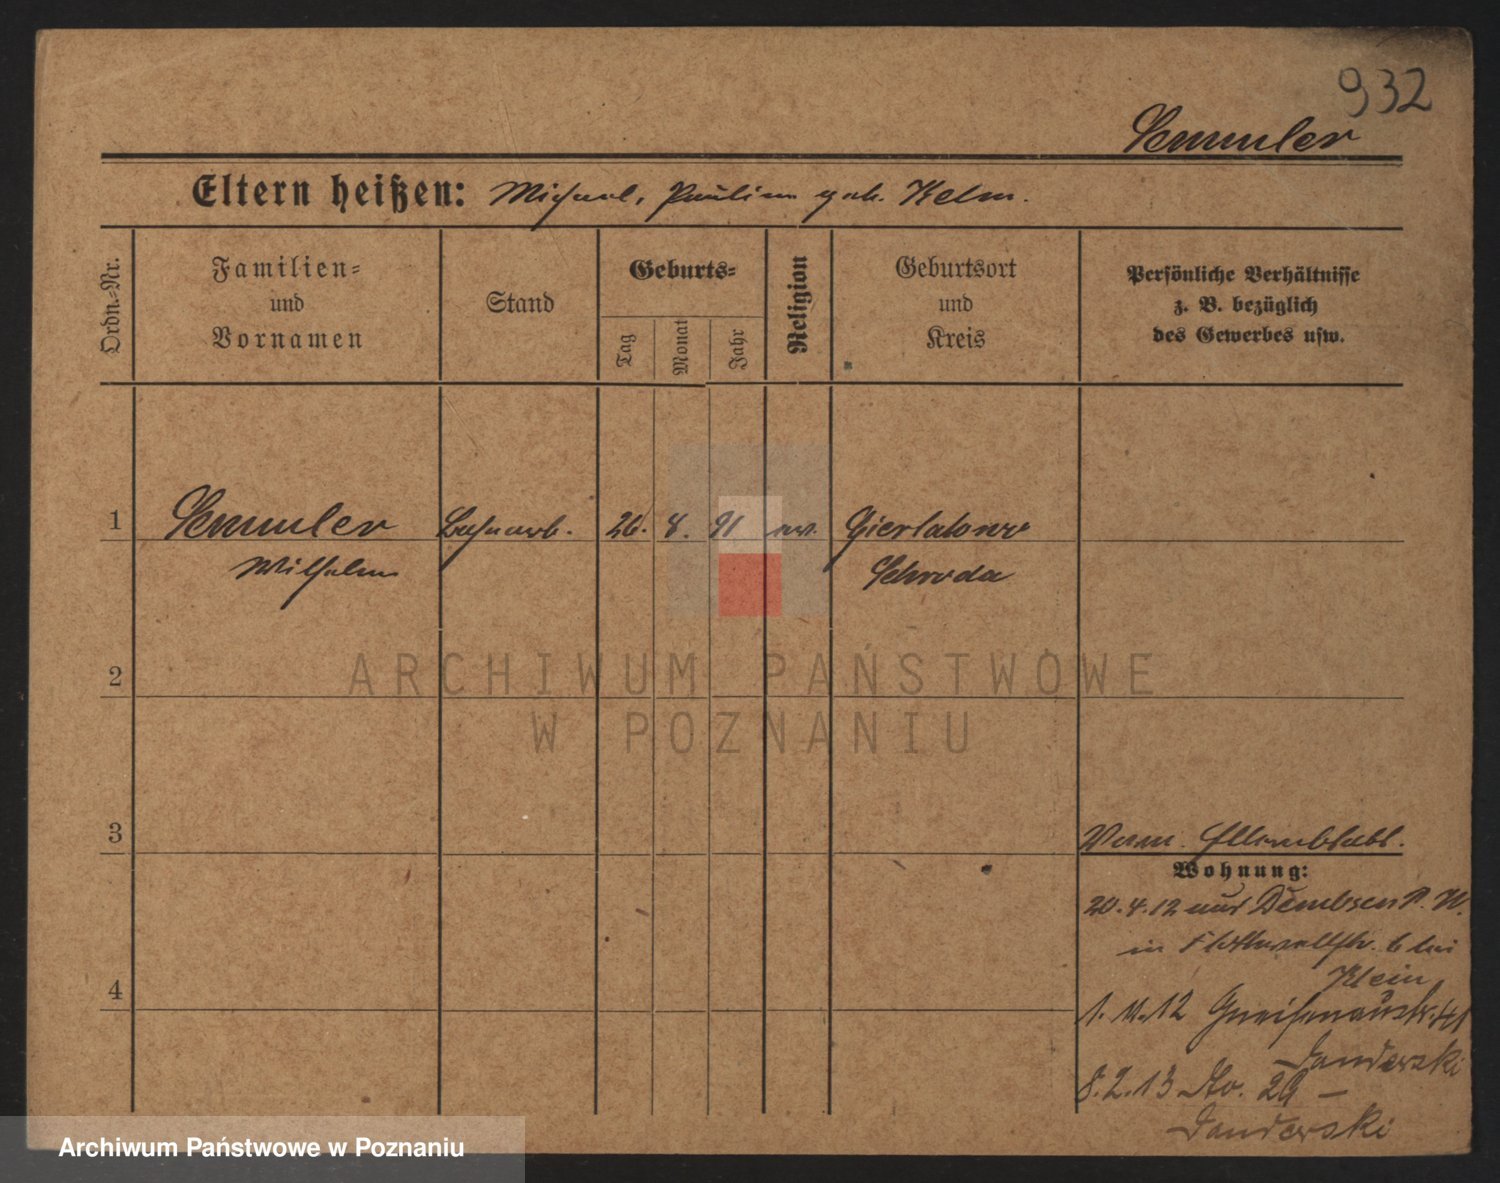 932
Semmler
Eltern heißen: Michael, Pauline geb. Kelm.
Ordn.-Nr.
Familien-
und
Vornamen
Stand
Geburts-
Tag
Monat
Jahr
Religion
Geburtsort
und
Kreis
Persönliche Verhältnisse
z. B. bezüglich
des Gewerbes usw.
1
Semmler
Wilhelm
Bahnarb.
26. 8. 91
ev.
Gierlatowo
Schroda
2
3
4
Wohnung:
20.4.12 aus Dembsen
in Flottwellstr. 6 bei
Klein
1.11.12 Gneisenaustr.
Danderski
8.2.13 No. 29 –
Danderski
ARCHIWUM PAŃSTWOWE
W POZNANIU
Archiwum Państwowe w Poznaniu